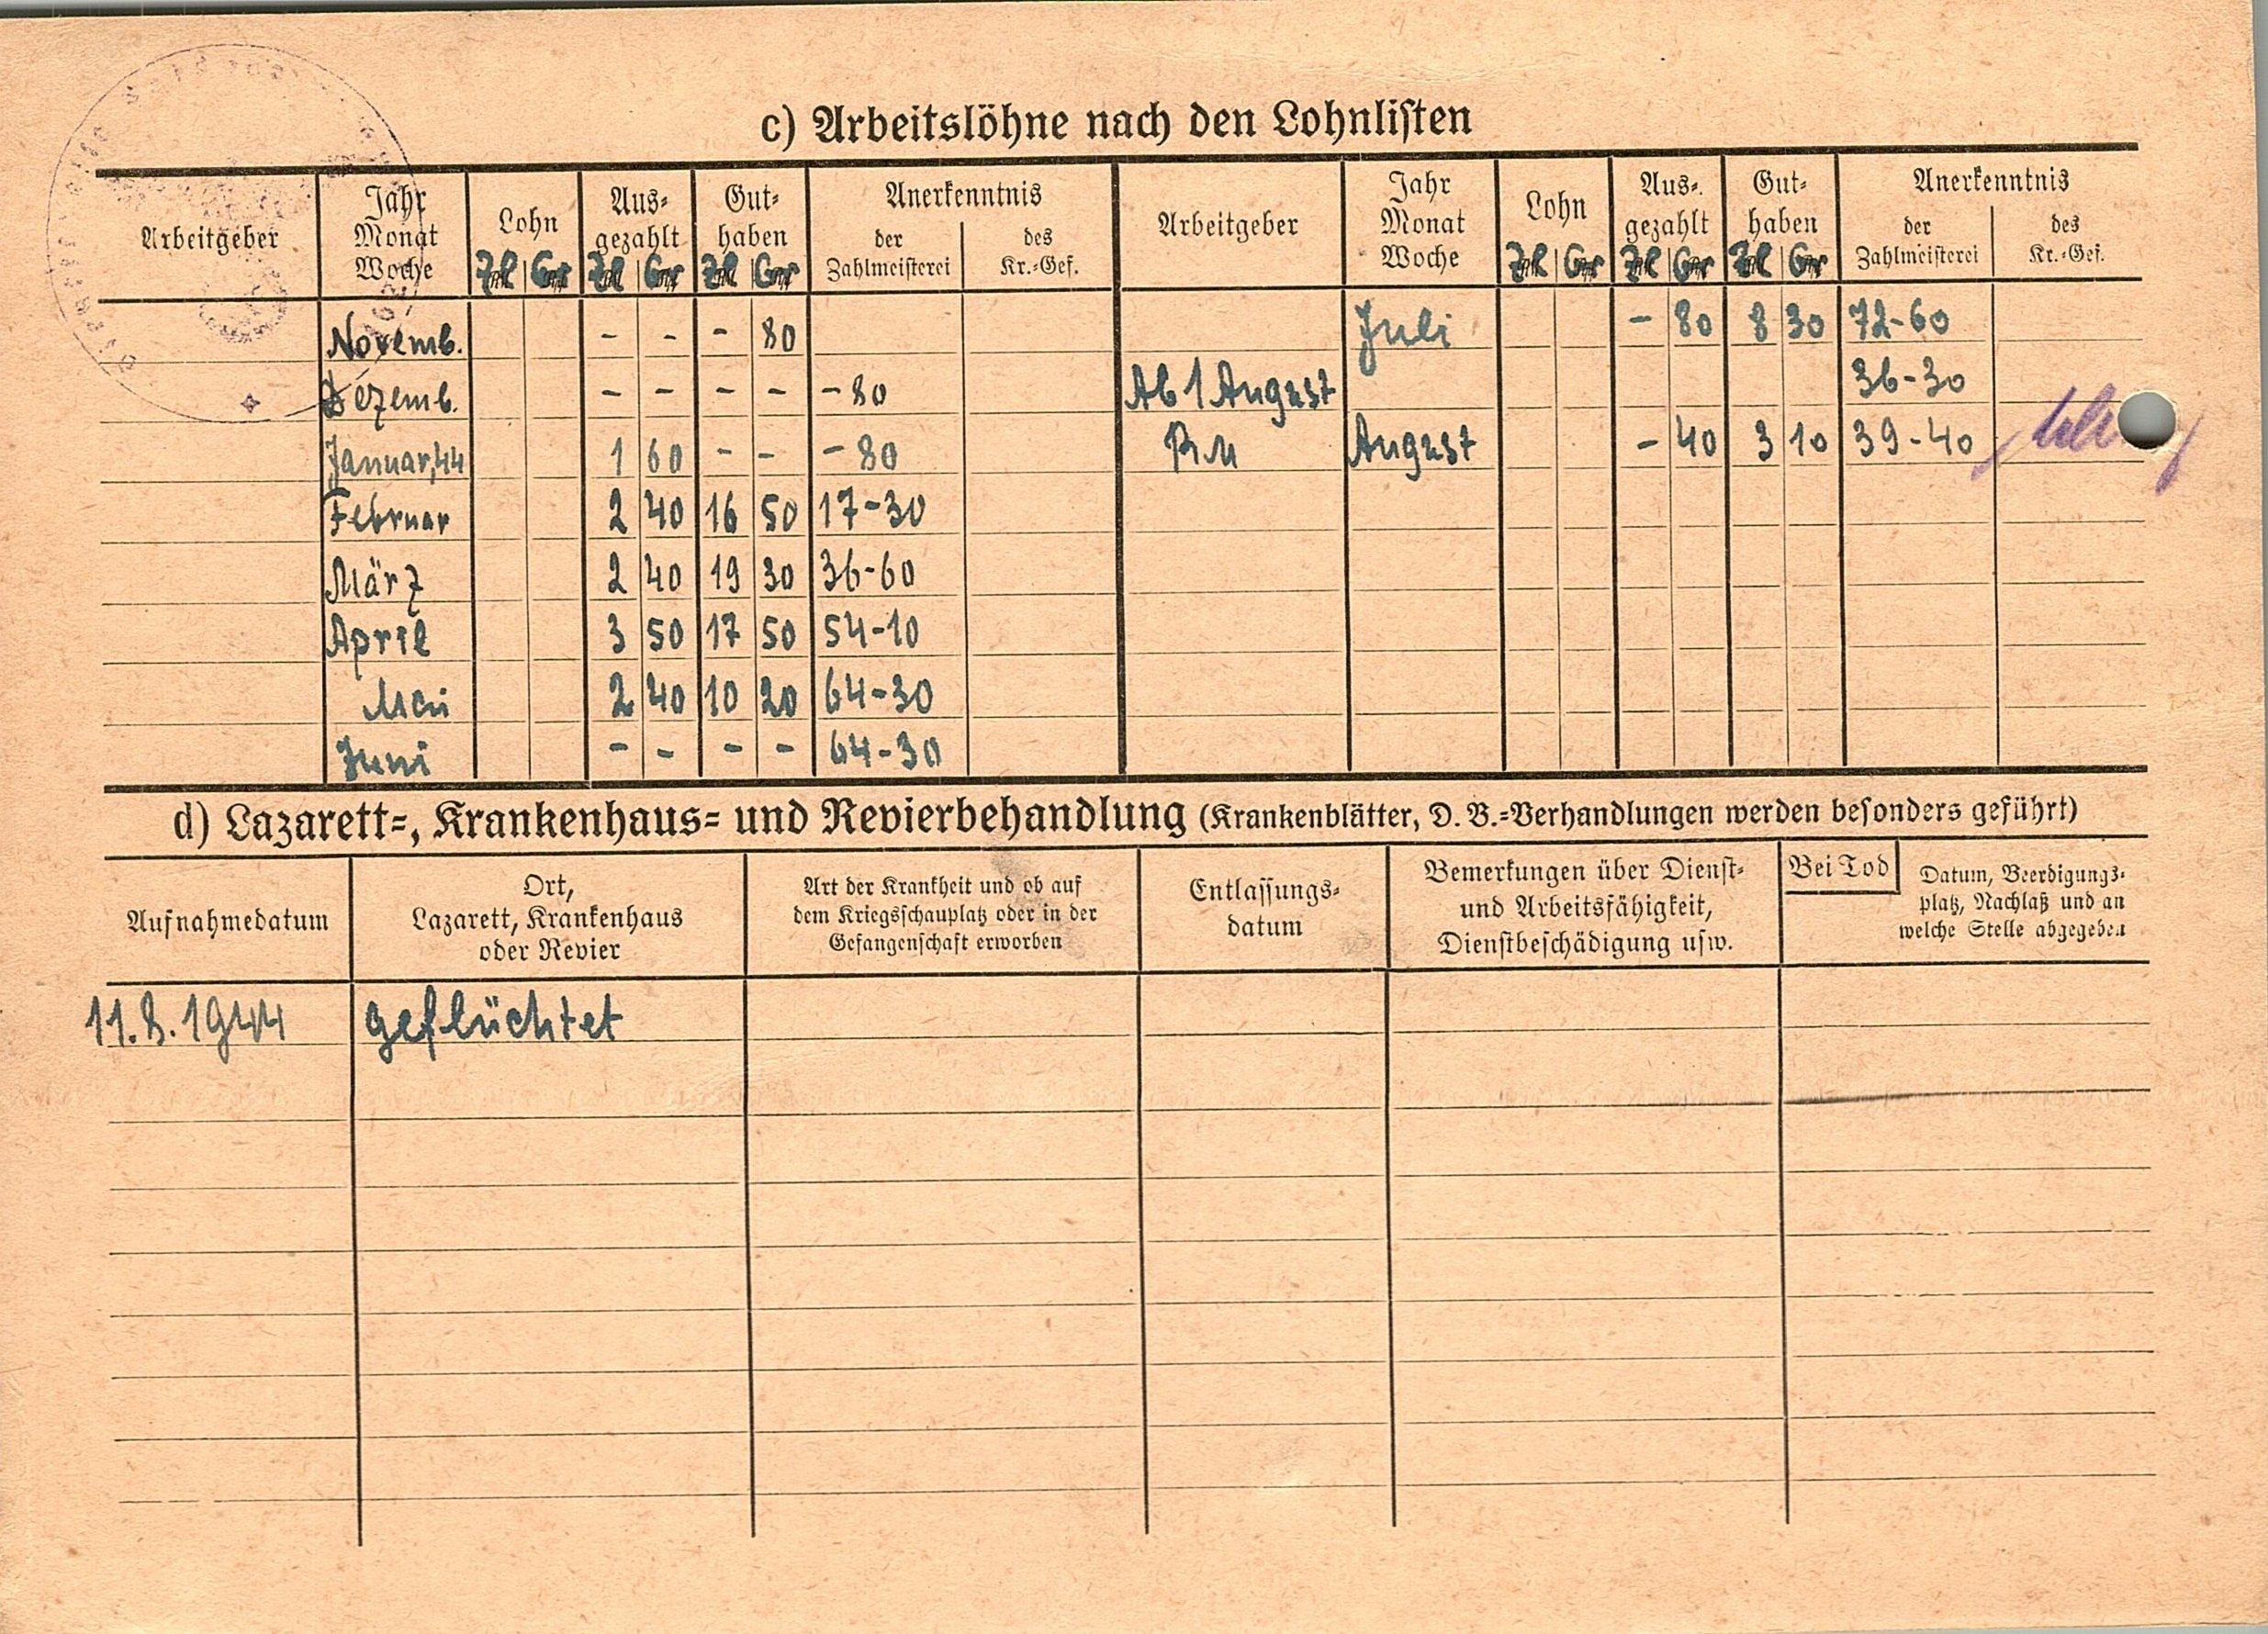 c) Arbeitslöhne nach den Lohnlisten
Arbeitgeber Jahr Monat Woche Lohn Zl Gr Ausgezahlt Zl Gr Guthaben Zl Gr Anerkenntnis der Zahlmeisterei des Kr.-Gef. Arbeitgeber Jahr Monat Woche Lohn Zl Gr Ausgezahlt Zl Gr Guthaben Zl Gr Anerkenntnis der Zahlmeisterei des Kr.-Gef.
Novemb. - - - 80 Juli - 80 8 30 72-60
Dezemb. - - - - - 80 Ab 1 August 36-30
Januar,44 1 60 - - - 80 RM August - 40 3 10 39-40
Februar 2 40 16 50 17-30
März 2 40 19 30 36-60
April 3 50 17 50 54-10
Mai 2 40 10 20 64-30
Juni - - - - 64-30
d) Lazarett-, Krankenhaus- und Revierbehandlung (Krankenblätter, D. B.-Verhandlungen werden besonders geführt)
Aufnahmedatum Ort, Lazarett, Krankenhaus oder Revier Art der Krankheit und ob auf dem Kriegsschauplatz oder in der Gefangenschaft erworben Entlassungs-datum Bemerkungen über Dienst- und Arbeitsfähigkeit, Dienstbeschädigung usw. Bei Tod Datum, Beerdigungs-platz, Nachlaß und an welche Stelle abgegeben
11.8.1944 geflüchtet